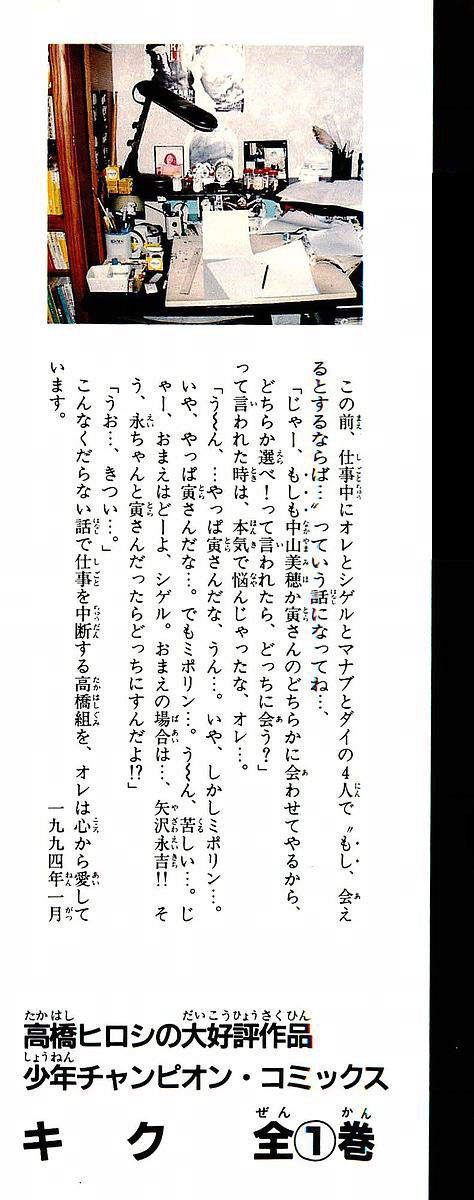 この前、仕事中にオレとシゲルとマナブとダイの4人で〝もし、会え
るとするならば…〟っていう話になってね…、
「じゃー、もしも中山美穂か寅さんのどちらかに会わせてやるから、
どちらか選べ！って言われたら、どっちに会う？」
って言われた時は、本気で悩んじゃったな、オレ…。
「う〜ん、…やっぱ寅さんだな、うん…。いや、しかしミポリン…。
いや、やっぱ寅さんだな…。でもミポリン…。う〜ん、苦しい…。じ
ゃー、おまえはどーよ、シゲル。おまえの場合は…、矢沢永吉!! そ
う、永ちゃんと寅さんだったらどっちにすんだよ!?」
「うお…、きつい…。」
こんなくだらない話で仕事を中断する高橋組を、オレは心から愛して
います。
一九九四年一月
高橋ヒロシの大好評作品
少年チャンピオン・コミックス
キク 全①巻